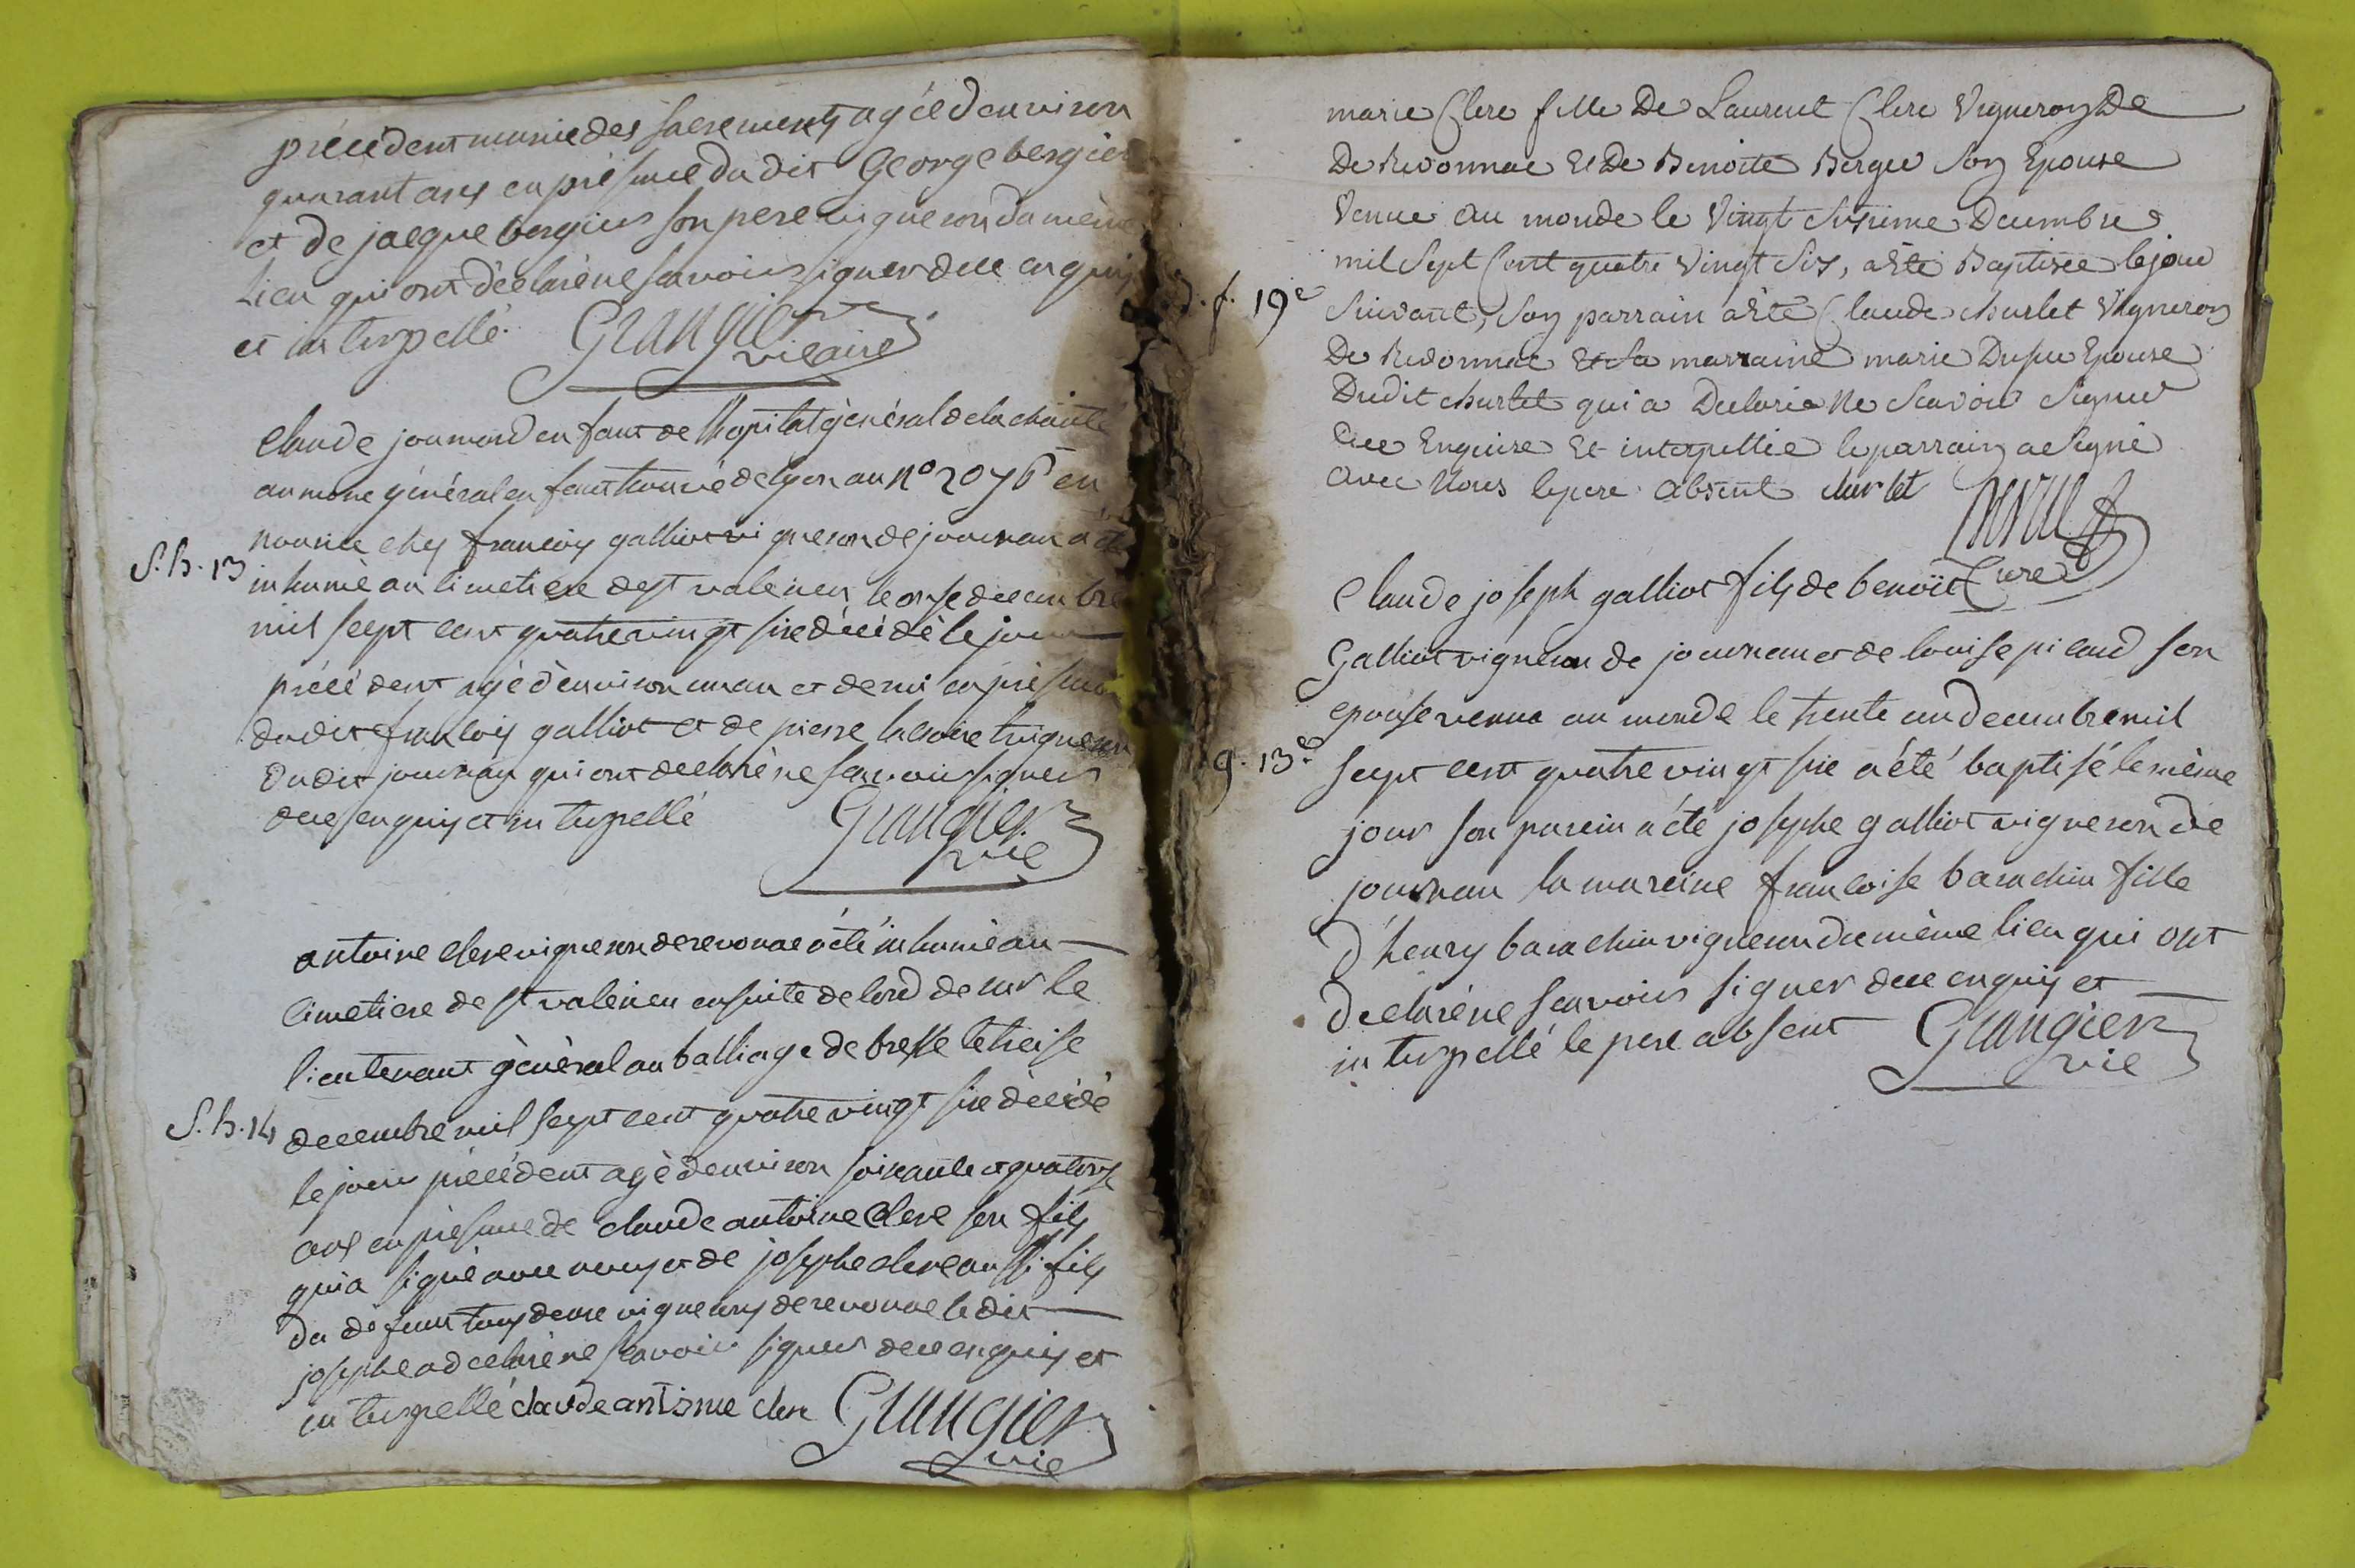 précédent munie des sacrements agée denviron
quarant ans en présence du dit George bergier
et de jacque bergier son pere vigneron du même
Lieu qui ont déclaré ne savoir signer de ce enquis
et interpellé. Grangier
vicaire
Claude journord enfant de lhopital général de la charité
aumone général enfant trouvé de lyon au n° 2076 en
nourice chez francois galliot vigneron de journan a été
S.h. 13
inhumé au cimetiere de st valerien le onse decembre
mil sept cent quatre vingt sixe décédé le jour
précédent agé denviron un an et demi en présence
dudit francois galliot et de pierre vigneron
dudit journan qui ont declaré ne savoir signer
de ce enquis et interpellé Grangier
vic
antoine clerc vigneron de revonac a été inhumé au
cimetiere de st valerien ensuite de lord de mr le
lieutenant général au balliage de bresse le treise
S.h. 14
decembre mil sept cent quatre vingt sixe décédé
le jour précédent agé denviron soixante et quatorze
ans en présence de claude antoine Clerc son fils
qui a signé avec nous et de josephe clerc aussi fils
du défunt tous deux vignerons de revonac le dit
josephe a declaré ne savoir signer de ce enquis et
interpellé claude antoine clerc Grangier
vic
marie Clerc fille De Laurent Clerc Vigneron De
De Revonnac Et De Benoite Berger Son Epouse
Venue au monde le Vingt Sixieme Decembre
mil Sept Cent quatre Vingt Six, a Eté Baptisée le jour
f. 19e
Suivant, Son parrain a Eté Claude churlet Vigneron
De Revonnac Et Sa marraine marie Dupu Epouse
Dudit churlet qui a Declaré Ne Scavoir Signer
De ce Enquise Et interpellée le parrain a Signé
avec Nous le pere absent churlet
Curé
Claude joseph galliot fils de benoit
Galliot vigneron de journan et de louise picard son
epouse venu au monde le trente un decembre mil
g. 13e
sept cent quatre vingt sixe a été baptisé le même
jour son parein a été josephe galliot vigneron de
journan la mareine francoise barachin fille
d'henry barachin vigneron du même lieu qui ont
declaré ne scavoir signer de ce enquis et
interpellé le pere absent Grangier
vic